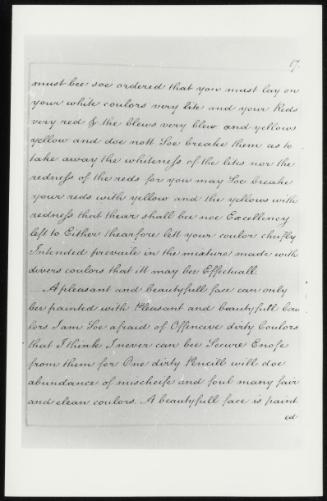 17.
must bee soe ordered that you must lay on
your white coulors very lite and your Reds
very red & the blews very blew and yellows
yellow and doe nott Soe breake them as to
take away the whiteness of the lites nor the
redness of the reds for you may Soe breake
your reds with yellow and the yellows with
redness that thear shall bee noe Excellency
left to Either thearfore lett your coulor chifly
Intended prevaile in the mixture made with
divers coulors that itt may bee Effectuall.
A pleasant and beautyfull face can only
bee painted with Pleasant and beautyfull Cou
lors I am Soe afraid of Offencive dirty Coulors
that I think I never can bee Secure Enofe
from them for One dirty Pencill will doe
abundance of mischeife and foul many fair
and clean coulors. A beautyfull face is paint
ed